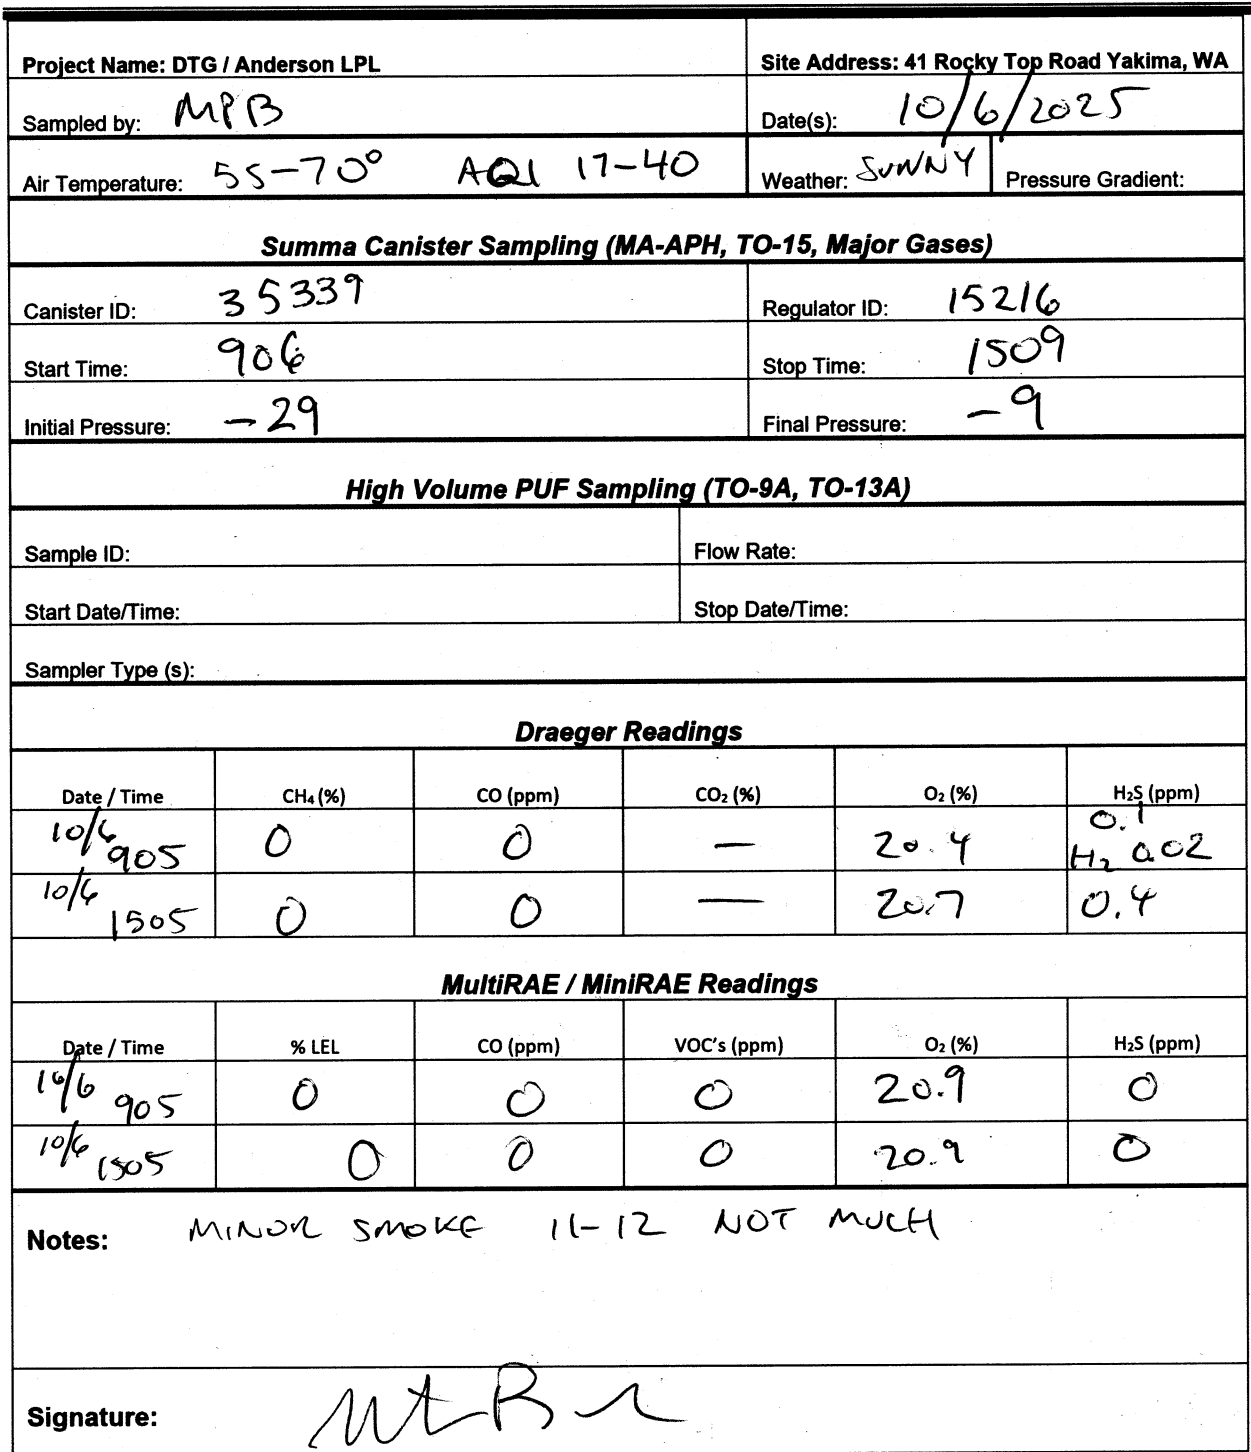 Project Name: DTG / Anderson LPL Site Address: 41 Rocky Top Road Yakima, WA
Sampled by: MPB Date(s): 10/6/2025
Air Temperature: 55-70° AQI 17-40 Weather: SUNNY Pressure Gradient:
Summa Canister Sampling (MA-APH, TO-15, Major Gases)
Canister ID: 35339 Regulator ID: 15216
Start Time: 906 Stop Time: 1509
Initial Pressure: -29 Final Pressure: -9
High Volume PUF Sampling (TO-9A, TO-13A)
Sample ID: Flow Rate:
Start Date/Time: Stop Date/Time:
Sampler Type (s):
Draeger Readings
Date / Time CH₄ (%) CO (ppm) CO₂ (%) O₂ (%) H₂S (ppm)
10/6 905 0 0 — 20.4 0.1
H₂ 0.02
10/6 1505 0 0 — 20.7 0.4
MultiRAE / MiniRAE Readings
Date / Time % LEL CO (ppm) VOC's (ppm) O₂ (%) H₂S (ppm)
10/6 905 0 0 0 20.9 0
10/6 1505 0 0 0 20.9 0
Notes: MINOR SMOKE 11-12 NOT MUCH
Signature: